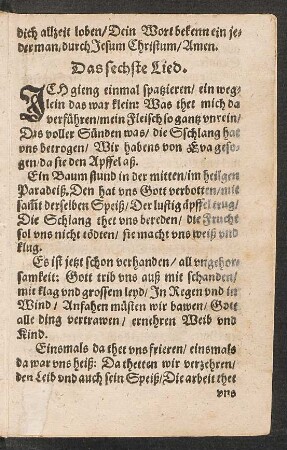 dich allzeit loben/ Dein Wort bekenn ein je-
der man/ durch Jesum Christum/ Amen.
Das sechste Lied.
ICH gieng einmal spatzieren/ ein weg-
lein das war klein: Was thet mich da
verführen/ mein Fleisch so gantz vnrein/
Das voller Sünden was/ die Sschlang hat
vns betrogen/ Wir habens von Eva geso-
gen/ da sie den Apffel aß.
Ein Baum stund in der mitten/ im heilgen
Paradeiß/ Den hat vns Gott verbotten/ mit
samt derselben Speiß/ Der lustig äpffel trug/
Die Schlang thet vns bereden/ die Frucht
sol vns nicht tödten/ sie macht vns weiß vnd
klug.
Es ist jetzt schon verhanden/ all vngehor-
samkeit: Gott trib vns auß mit schanden/
mit klag vnd grossem leyd/ In Regen vnd in
Wind/ Anfahen müsten wir bawen/ Gott
alle ding vertrawen/ ernehren Weib vnd
Kind.
Einsmals da thet vns frieren/ einsmals
da war vns heiß: Da thetten wir verzehren/
den Leib vnd auch sein Speiß/ Die arbeit thet
vns